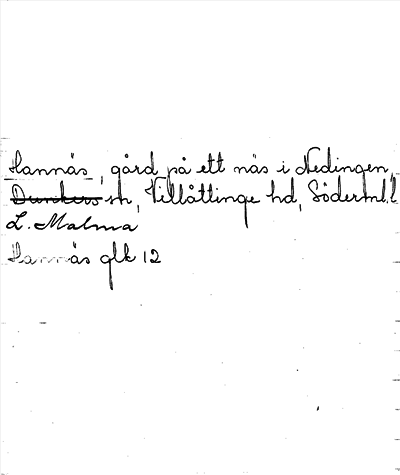 Hannäs, gård på ett näs i Nedingen,
Dunkers sn, Villåttinge hd, Söderml. l
L. Malma
Hannäs glk 12